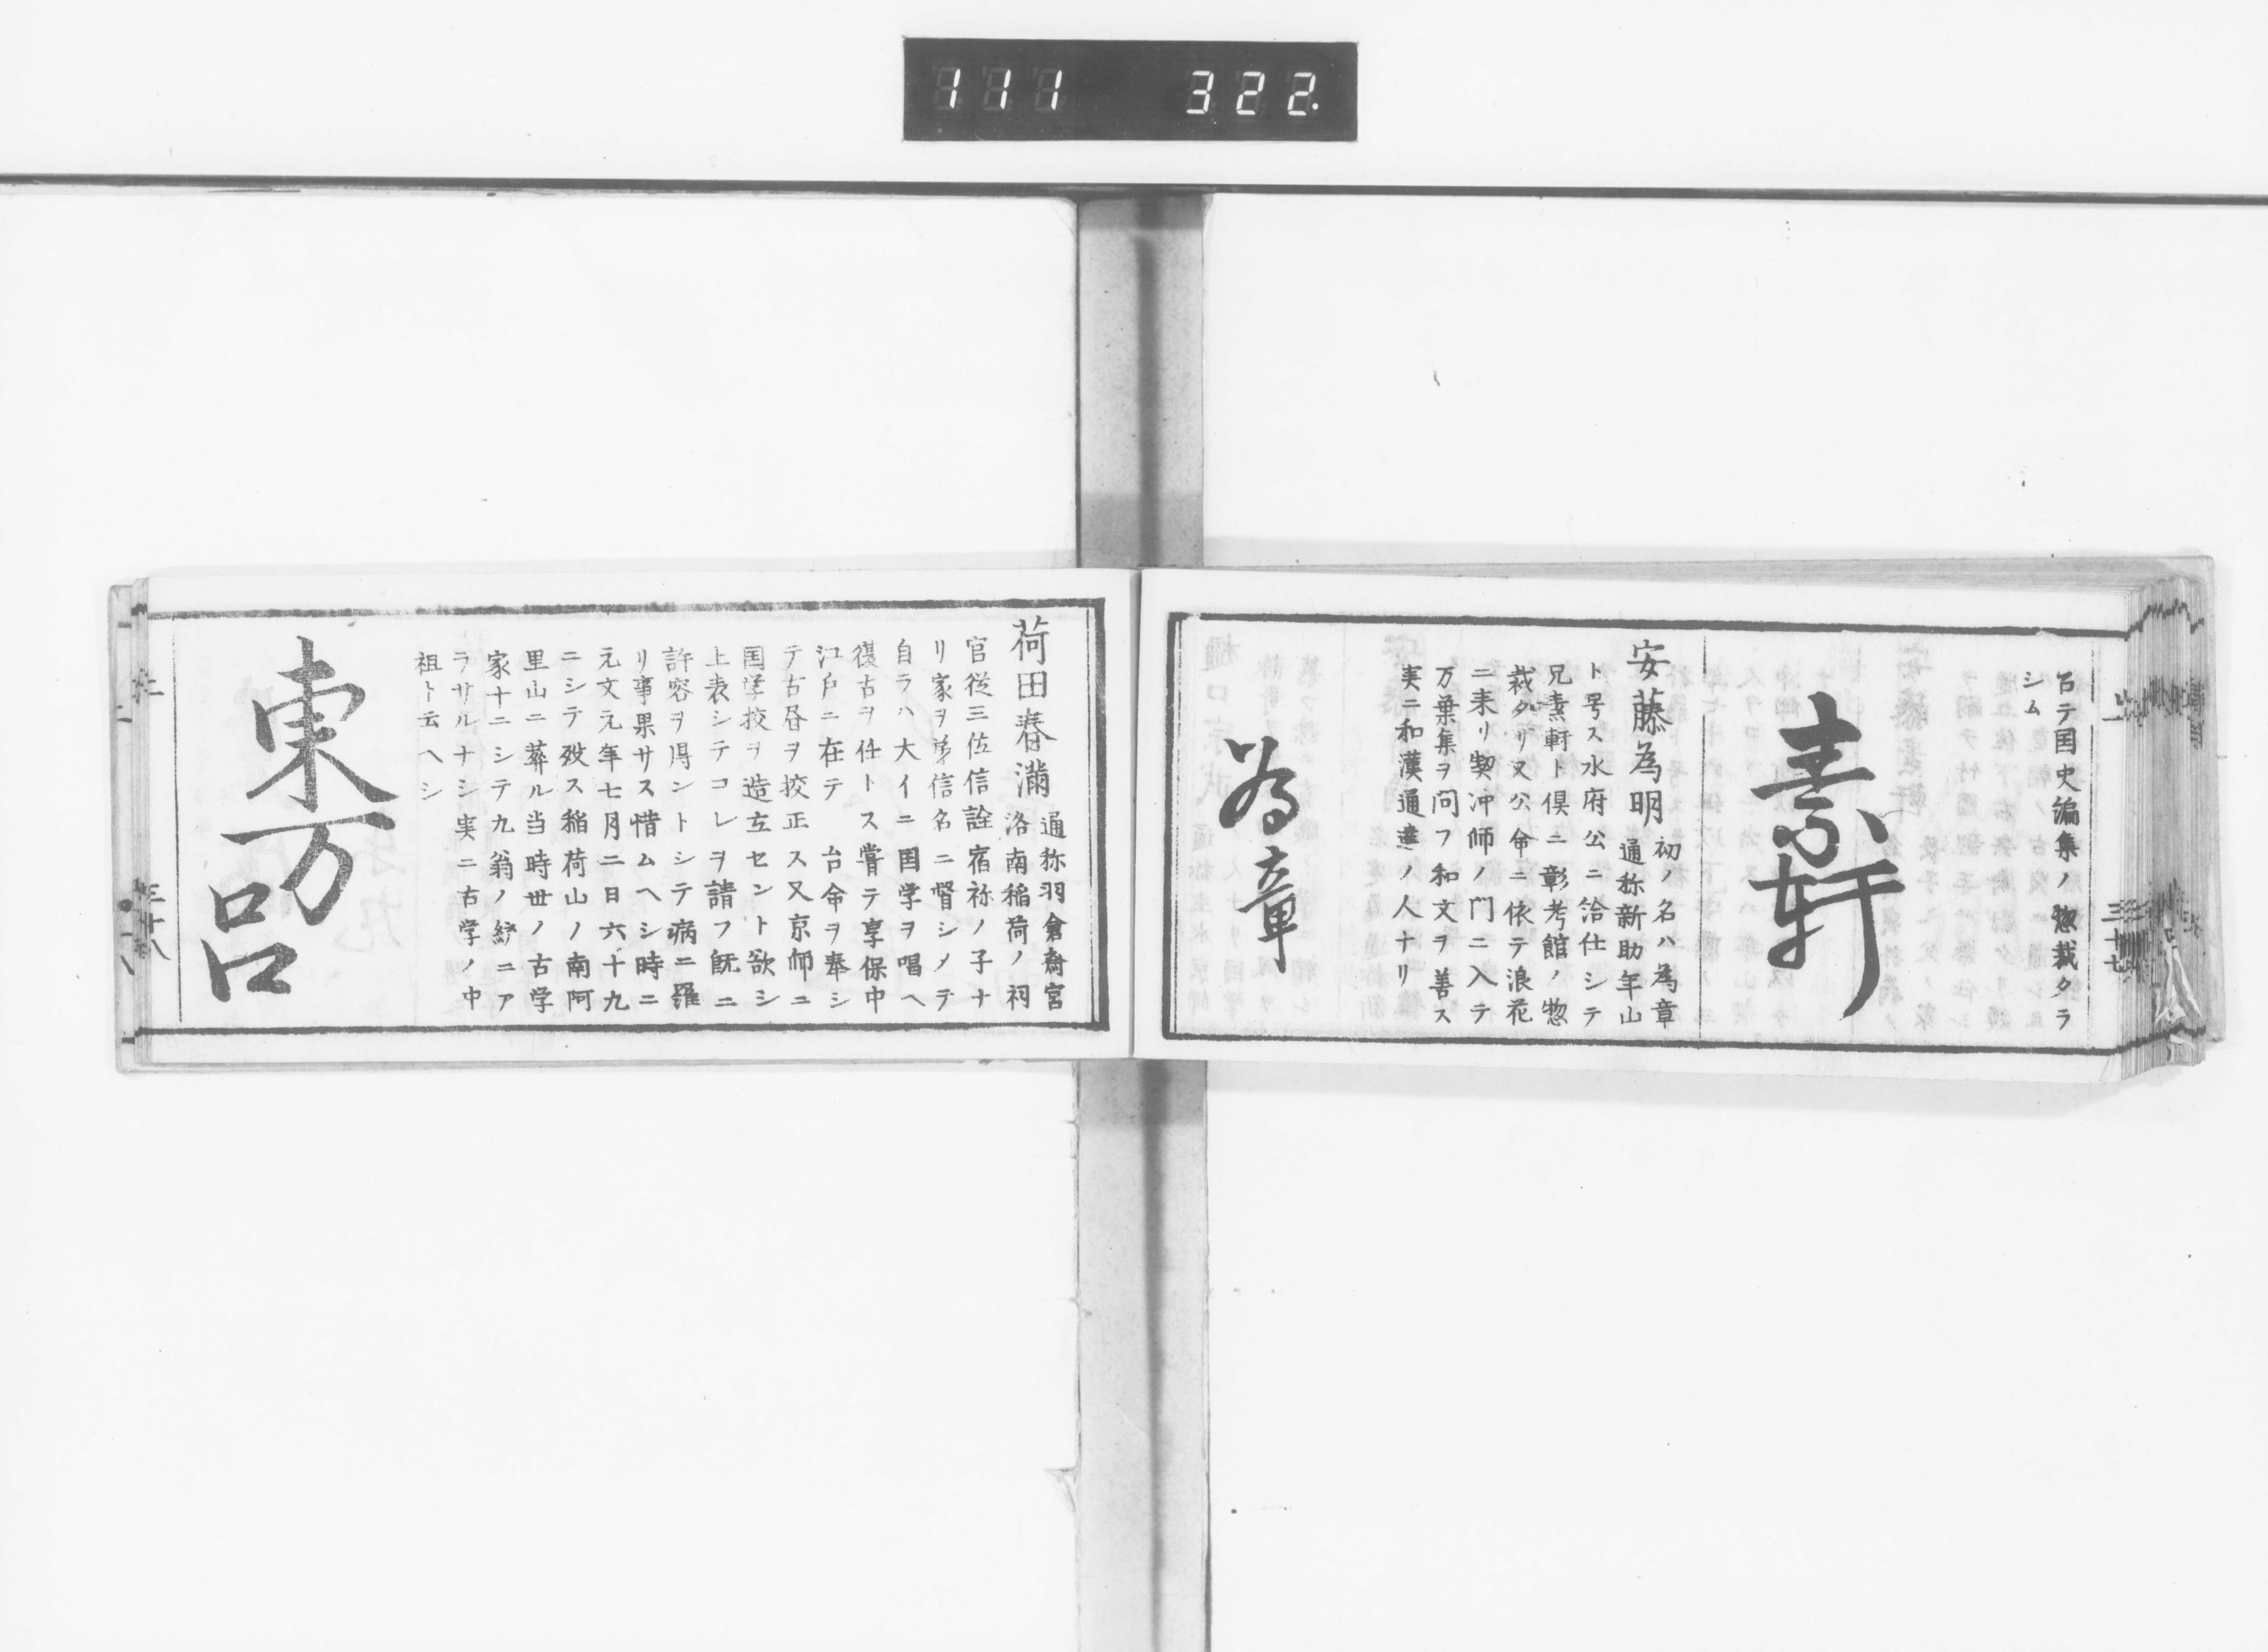 111 322.
召テ国史編集ノ惣裁タラ
シム
素軒
安藤為明 初ノ名ハ為章
通称新助年山
ト号ス水府公ニ給仕シテ
兄素軒ト倶ニ彰考館ノ惣
裁タリ又公命ニ依テ浪花
ニ来リ契沖師ノ門ニ入テ
万葉集ヲ問フ和文ヲ善ス
実ニ和漢通達ノ人ナリ
為章
三十七
荷田春満 通称羽倉斎宮
洛南稲荷ノ祠
官従三位信詮宿祢ノ子ナ
リ家ヲ弟信名ニ督シメテ
自ラハ大イニ国学ヲ唱ヘ
復古ヲ任トス嘗テ享保中
江戸ニ在テ 台命ヲ奉シ
テ古昏ヲ校正ス又京師ニ
国学校ヲ造立セント欲シ
上表シテコレヲ請フ既ニ
許容ヲ得ントシテ病ニ罹
リ事果サス惜ムヘシ時ニ
元文元年七月二日六十九
ニシテ歿ス稲荷山ノ南阿
里山ニ葬ル当時世ノ古学
家十ニシテ九翁ノ緒ニア
ラサルナシ実ニ古学ノ中
祖ト云ヘシ
東万
呂
三十八